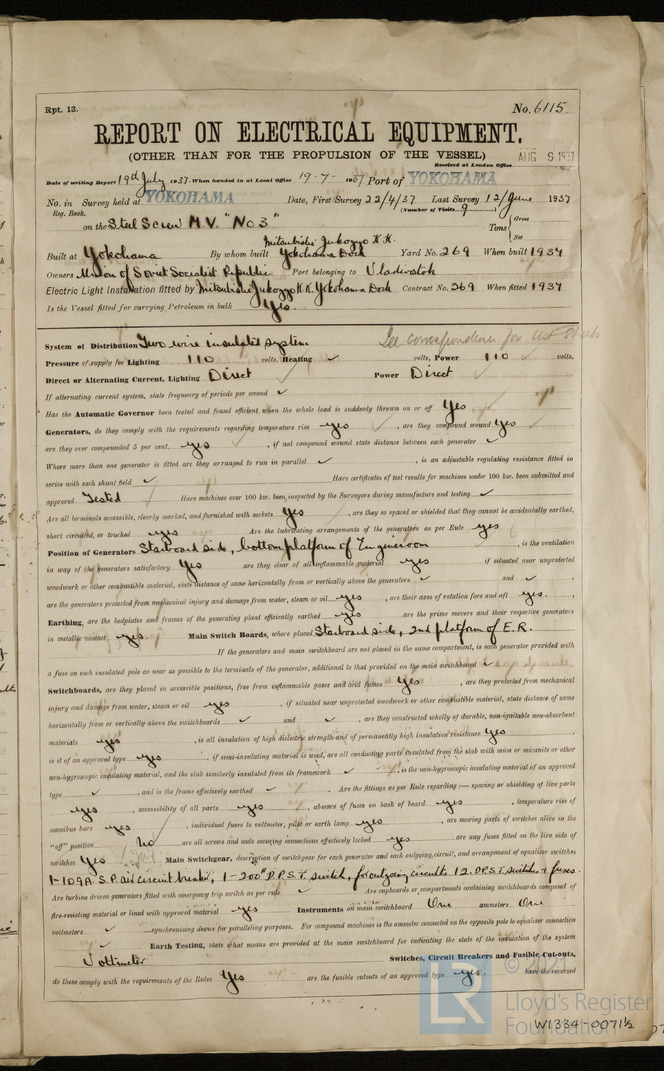 Rpt. 13.
No. 6115
REPORT ON ELECTRICAL EQUIPMENT.
(OTHER THAN FOR THE PROPULSION OF THE VESSEL)
Received at London Office AUG 9 1937
Date of writing Report 19th July 1937. When handed in at Local Office 19-7-1937 Port of YOKOHAMA
No. in Survey held at YOKOHAMA Date, First Survey 22/4/37 Last Survey 12/June 1937
Reg. Book. (Number of Visits 9)
on the Steel Screw M.V. "No 3" Tons Gross Net
Built at Yokohama By whom built Mitsubishi Jukogyo K.K. Yokohama Dock Yard No. 269 When built 1937
Owners Union of Soviet Socialist Republic Port belonging to Vladivostok
Electric Light Installation fitted by Mitsubishi Jukogyo K.K. Yokohama Dock Contract No. 269 When fitted 1937
Is the Vessel fitted for carrying Petroleum in bulk Yes.
System of Distribution Two wire insulated system See correspondence for
Pressure of supply for Lighting 110 volts, Heating ✓ volts, Power 110 ✓ volts.
Direct or Alternating Current, Lighting Direct ✓ Power Direct ✓
If alternating current system, state frequency of periods per second ✓
Has the Automatic Governor been tested and found efficient when the whole load is suddenly thrown on or off Yes
Generators, do they comply with the requirements regarding temperature rise yes ✓, are they compound wound Yes ✓
are they over compounded 5 per cent. yes ✓, if not compound wound state distance between each generator ✓
Where more than one generator is fitted are they arranged to run in parallel ✓, is an adjustable regulating resistance fitted in
series with each shunt field ✓ Have certificates of test results for machines under 100 kw. been submitted and
approved Tested Have machines over 100 kw. been inspected by the Surveyors during manufacture and testing ✓
Are all terminals accessible, clearly marked, and furnished with sockets Yes ✓, are they so spaced or shielded that they cannot be accidentally earthed,
short circuited, or touched yes Are the lubricating arrangements of the generators as per Rule yes
Position of Generators Starboard side, bottom platform of Engineroom, is the ventilation
in way of the generators satisfactory Yes are they clear of all inflammable material yes if situated near unprotected
woodwork or other combustible material, state distance of same horizontally from or vertically above the generators ✓ and ✓,
are the generators protected from mechanical injury and damage from water, steam or oil yes, are their axes of rotation fore and aft yes.
Earthing, are the bedplates and frames of the generating plant efficiently earthed yes are the prime movers and their respective generators
in metallic contact yes. Main Switch Boards, where placed Starboard side, 2nd platform of E.R.
If the generators and main switchboard are not placed in the same compartment, is each generator provided with
a fuse on each insulated pole as near as possible to the terminals of the generator, additional to that provided on the main switchboard ✓
Switchboards, are they placed in accessible positions, free from inflammable gases and acid fumes Yes, are they protected from mechanical
injury and damage from water, steam or oil yes, if situated near unprotected woodwork or other combustible material, state distance of same
horizontally from or vertically above the switchboards ✓ and ✓, are they constructed wholly of durable, non-ignitable non-absorbent
materials yes, is all insulation of high dielectric strength and of permanently high insulation resistance yes
is it of an approved type yes, if semi-insulating material is used, are all conducting parts insulated from the slab with mica or micanite or other
non-hygroscopic insulating material, and the slab similarly insulated from its framework ✓, is the non-hygroscopic insulating material of an approved
type ✓, and is the frame effectively earthed ✓ Are the fittings as per Rule regarding :— spacing or shielding of live parts
yes, accessibility of all parts yes, absence of fuses on back of board yes, temperature rise of
omnibus bars yes, individual fuses to voltmeter, pilot or earth lamp yes, are moving parts of switches alive in the
"off" position No are all screws and nuts securing connections effectively locked yes are any fuses fitted on the live side of
switches Yes Main Switchgear, description of switchgear for each generator and each outgoing circuit, and arrangement of equalizer switches
1-109A. S.P. air circuit breaker, 1-200A D.P.S.T. switch, for outgoing circuits 12. D.P.S.T. switches & fuses.
Are turbine driven generators fitted with emergency trip switch as per rule ✓ Are cupboards or compartments containing switchboards composed of
fire-resisting material or lined with approved material yes Instruments on main switchboard One ammeters One
voltmeters ✓ synchronising device for paralleling purposes. For compound machines is the ammeter connected on the opposite pole to equaliser connection
✓ Earth Testing, state what means are provided at the main switchboard for indicating the state of the insulation of the system
Voltmeter Switches, Circuit Breakers and Fusible Cut-outs,
do these comply with the requirements of the Rules Yes are the fusible cutouts of an approved type yes. Have the reversed
© 2021
LR Lloyd's Register
Foundation
W1334-0071½